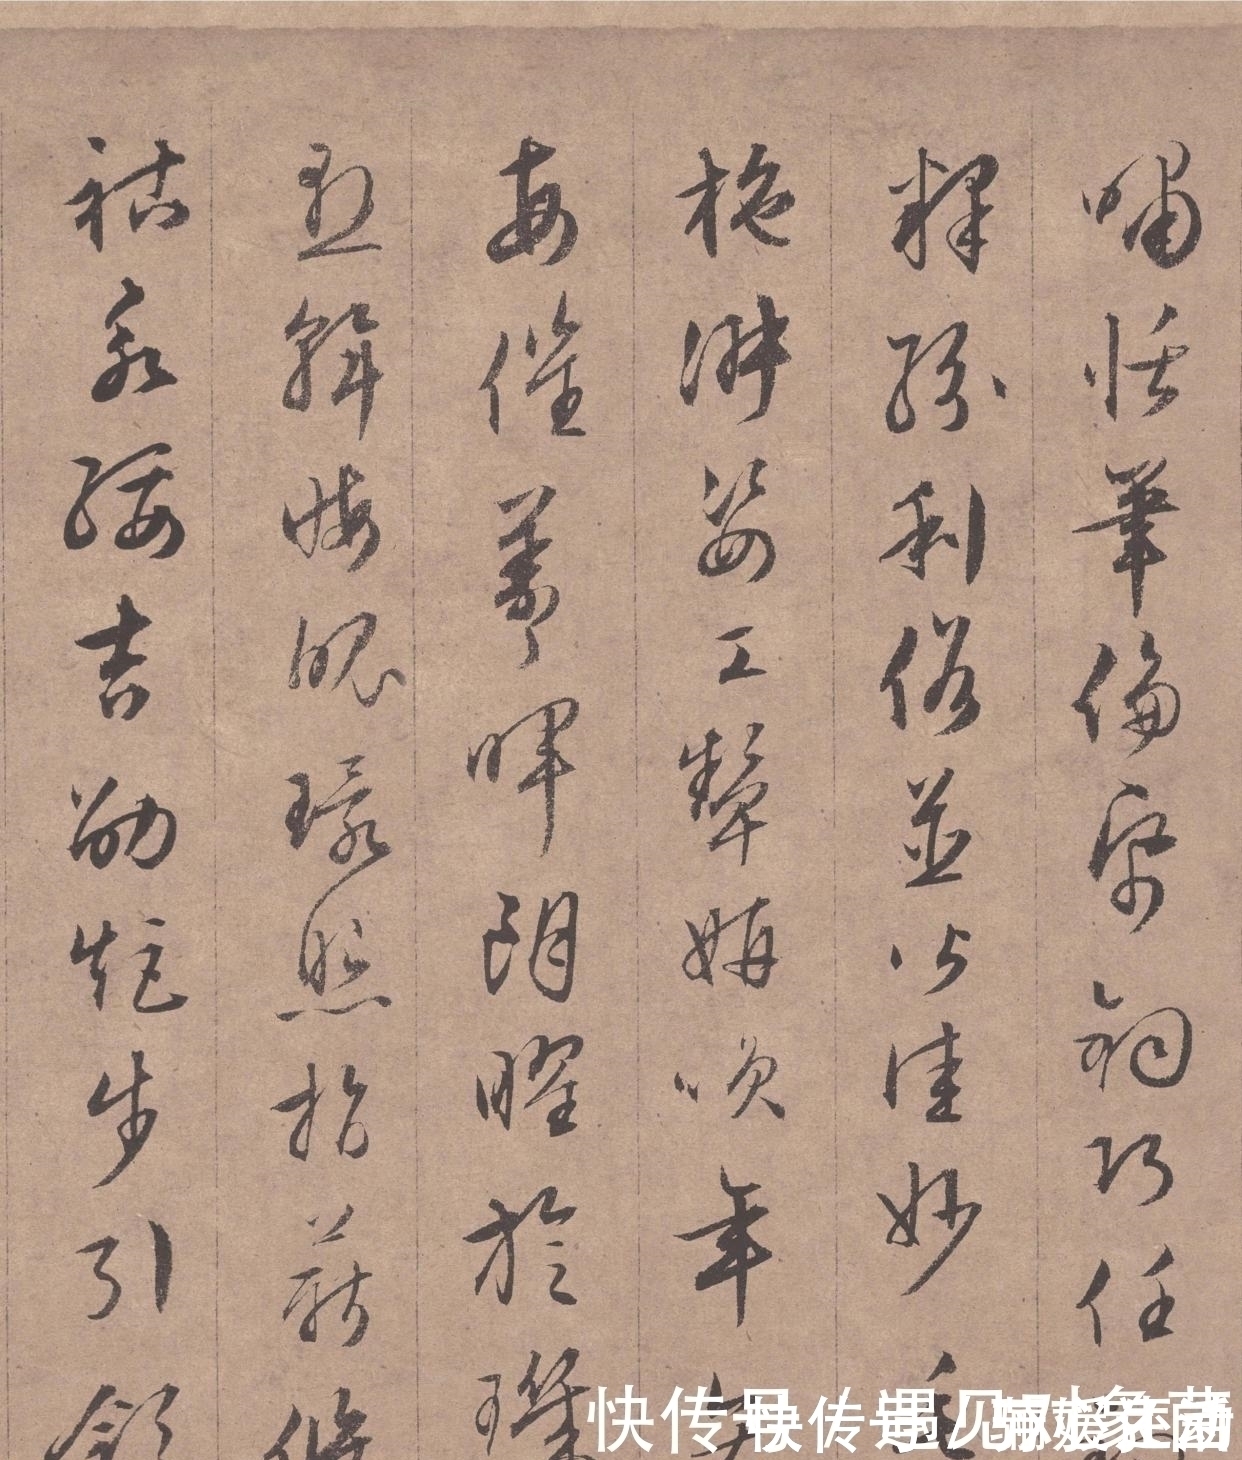 嘯恬筆倫紙鈞巧任
釋紛利俗並皆佳妙毛
施淑姿工顰妍咲年矢
每催羲暉朗曜旋璣
懸斡晦魄環照指薪修
祜永綏吉劭矩步引領
快传号
快传号